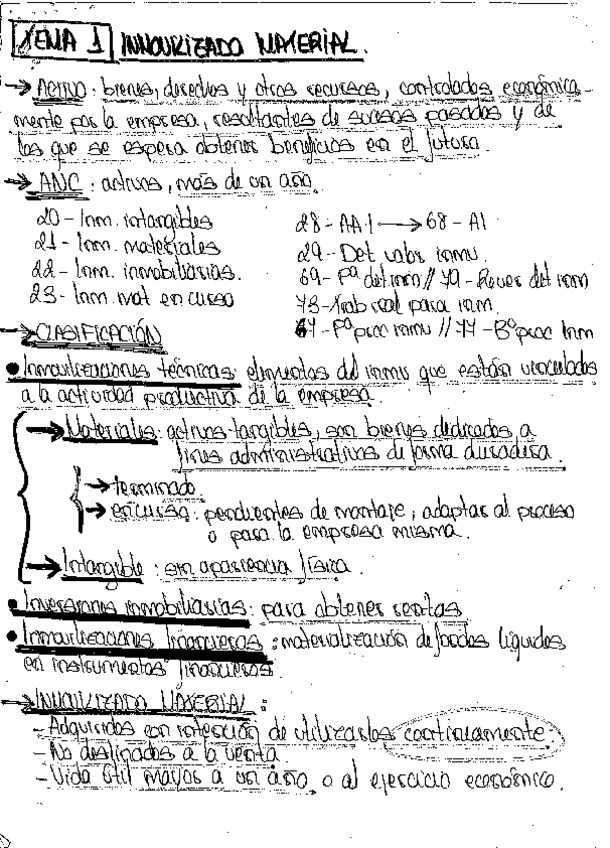 TEMA 1 INMOVILIZADO MATERIAL.
→ ACTIVO: bienes, derechos y otros recursos, controlados económica-
mente por la empresa, resultantes de sucesos pasados y de
los que se espera obtener beneficios en el futuro.
→ ANC: activos, más de un año.
20 - Inm. intangibles
21 - Inm. materiales
22 - Inm. inmobiliarias.
23 - Inm. mat en curso
28 - AA.I → 68 - AI
29 - Det valor inmv.
69 - Pª det inm // 79 - Rever det inm
73 - Trab real para inm.
67 - Pª proc inmv // 77 - Bº proc Inm
→ CLASIFICACIÓN
• Inmovilizaciones técnicas: elementos del inmv que están vinculados
a la actividad productiva de la empresa.
→ Materiales: activos tangibles, son bienes dedicados a
fines administrativos de forma duradera.
→ terminado
→ en curso: pendientes de montaje, adaptar al proceso
o para la empresa misma.
→ Intangible: sin apariencia física.
• Inversiones inmobiliarias: para obtener rentas
• Inmovilizaciones financieras: materialización de fondos líquidos
en instrumentos financieros.
→ INMOVILIZADO MATERIAL:
- Adquiridos con intención de utilizarlos continuamente.
- No destinados a la venta.
- Vida útil mayor a un año, o al ejercicio económico.